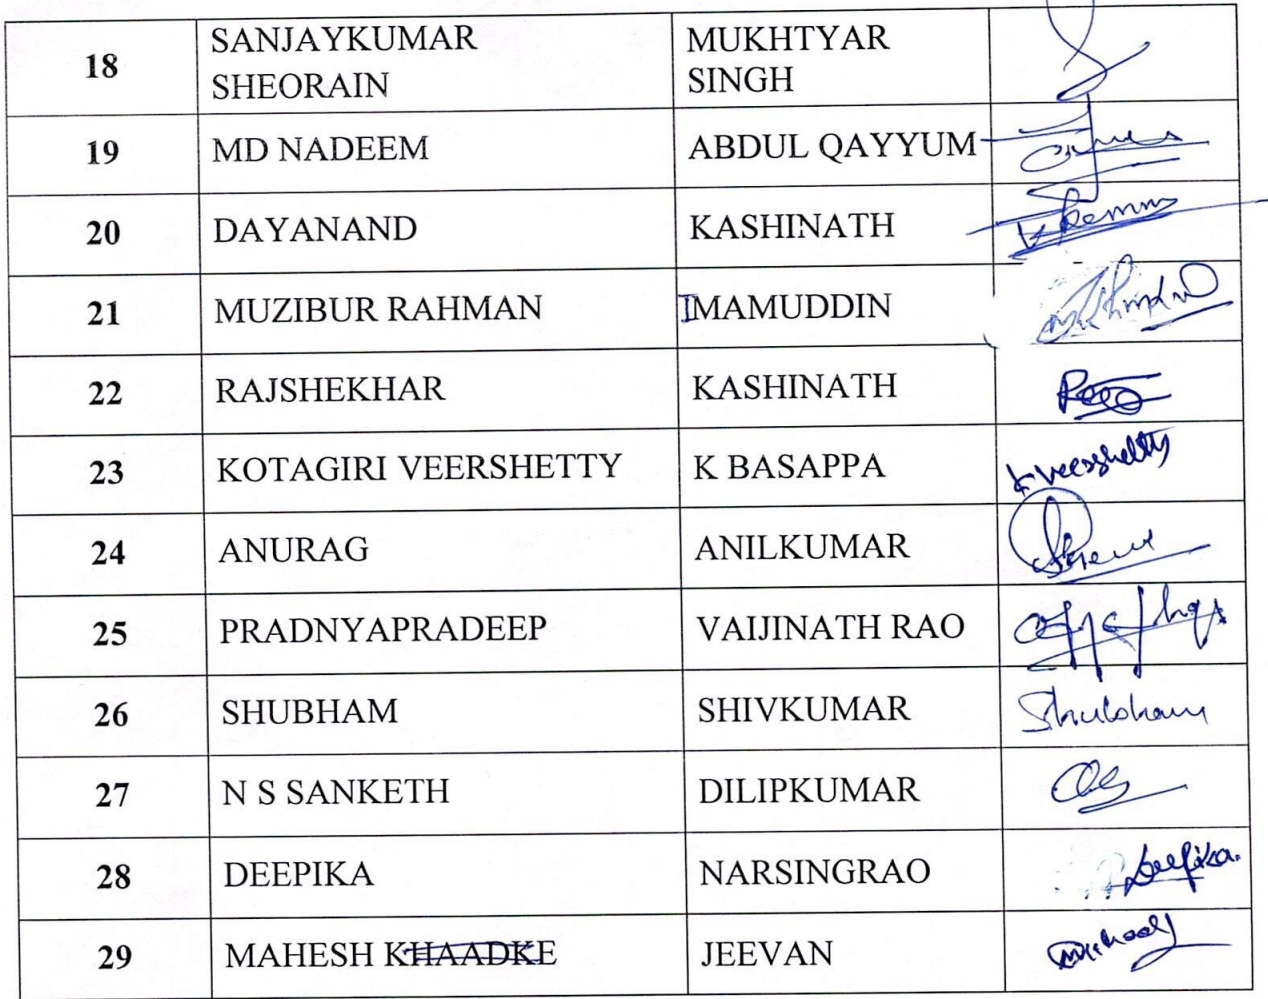 18 SANJAYKUMAR MUKHTYAR
SHEORAIN SINGH
19 MD NADEEM ABDUL QAYYUM
20 DAYANAND KASHINATH
21 MUZIBUR RAHMAN IMAMUDDIN
22 RAJSHEKHAR KASHINATH
23 KOTAGIRI VEERSHETTY K BASAPPA K Veershetty
24 ANURAG ANILKUMAR
25 PRADNYAPRADEEP VAIJINATH RAO
26 SHUBHAM SHIVKUMAR Shubham
27 N S SANKETH DILIPKUMAR
28 DEEPIKA NARSINGRAO Deepika.
29 MAHESH KHAADKE JEEVAN